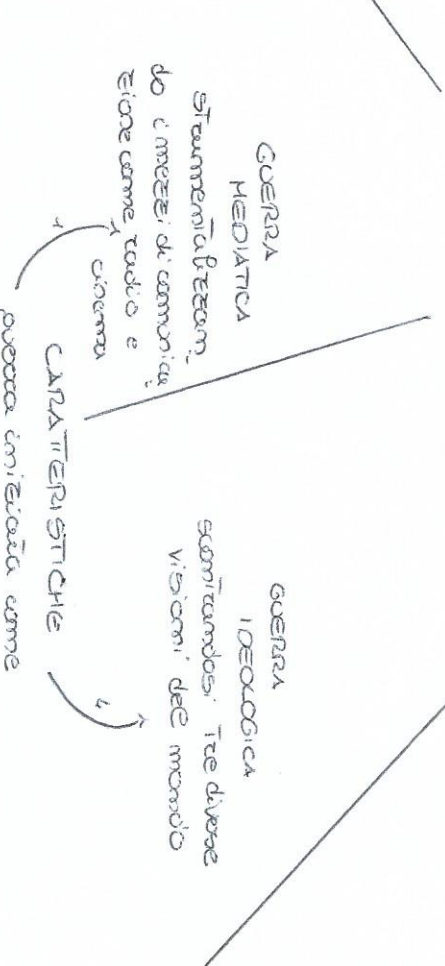 GUERRA
MEDIATICA
strumentalizzan
do i mezzi di comunica
zione come radio e
cinema
GUERRA
IDEOLOGICA
scontrandosi tre diverse
visioni del mondo
CARATTERISTICHE
guerra iniziata come